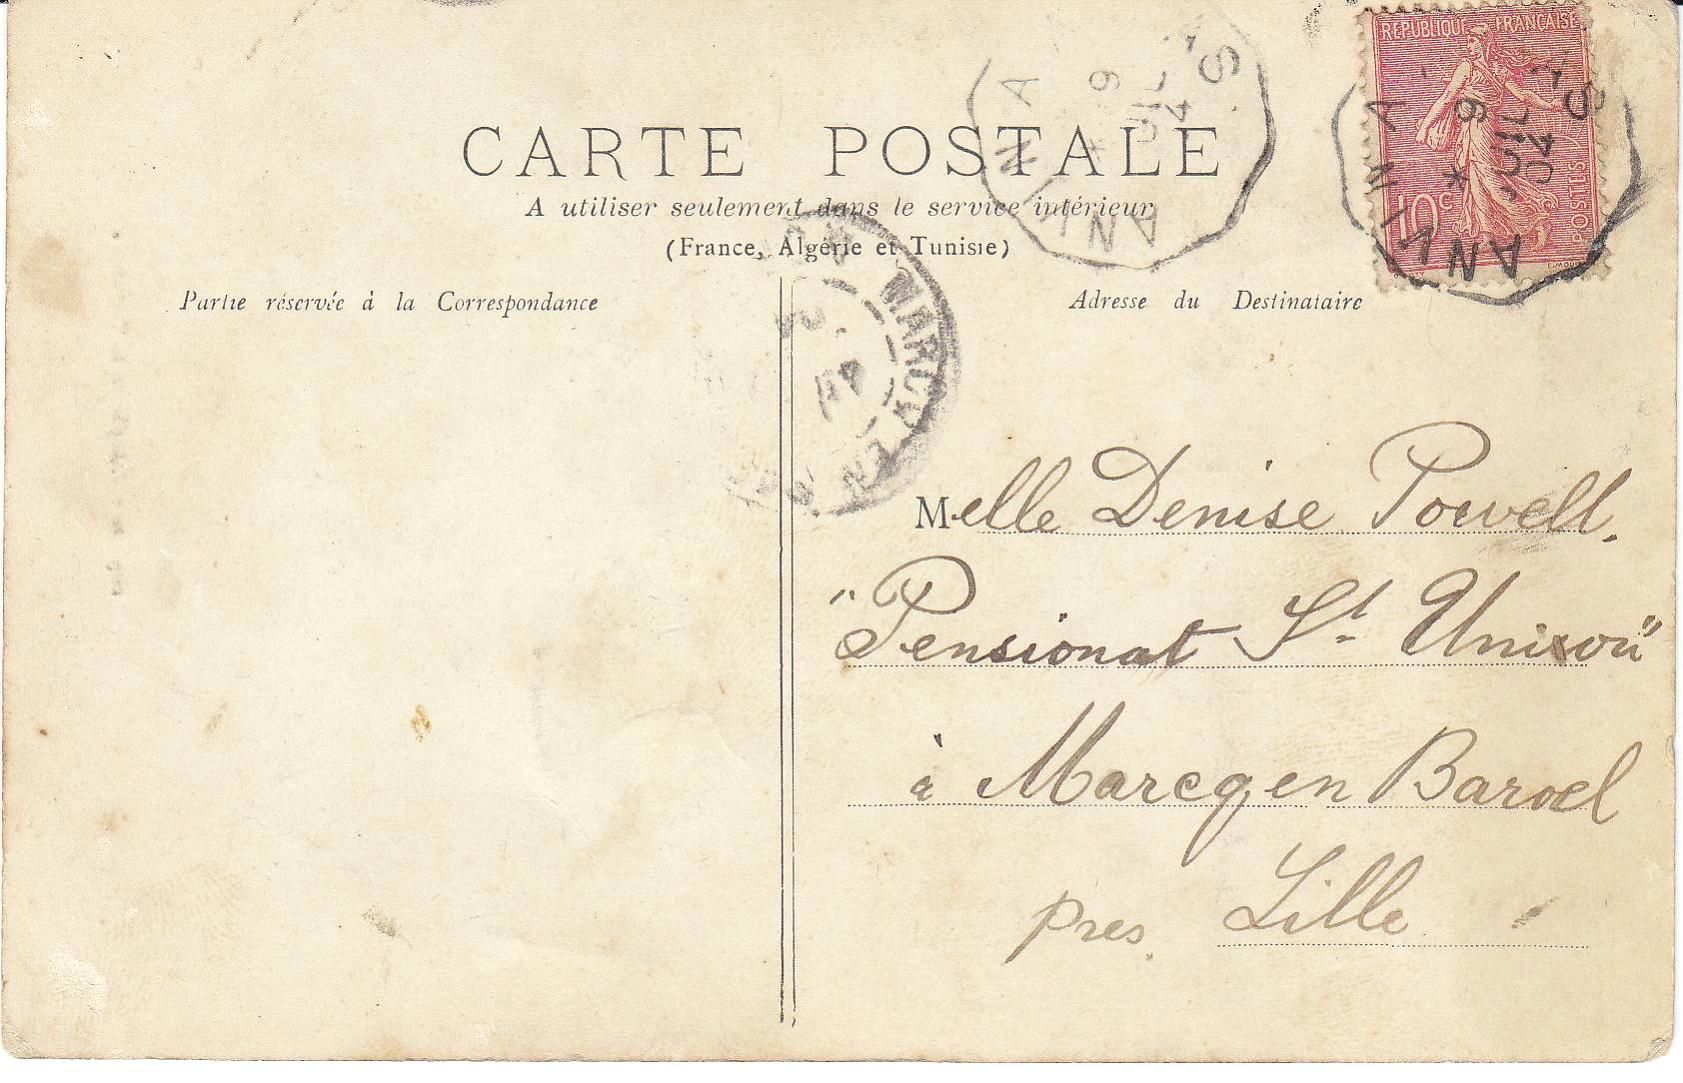 RÉPUBLIQUE FRANÇAISE
10c
POSTES
9
JUIL
04
CARTE POSTALE
A utiliser seulement dans le service intérieur
(France, Algérie et Tunisie)
Partie réservée à la Correspondance
Adresse du Destinataire
MARCQ EN
Melle Denise Powell.
"Pensionat St
à Marcq en Baroel
pres. Lille